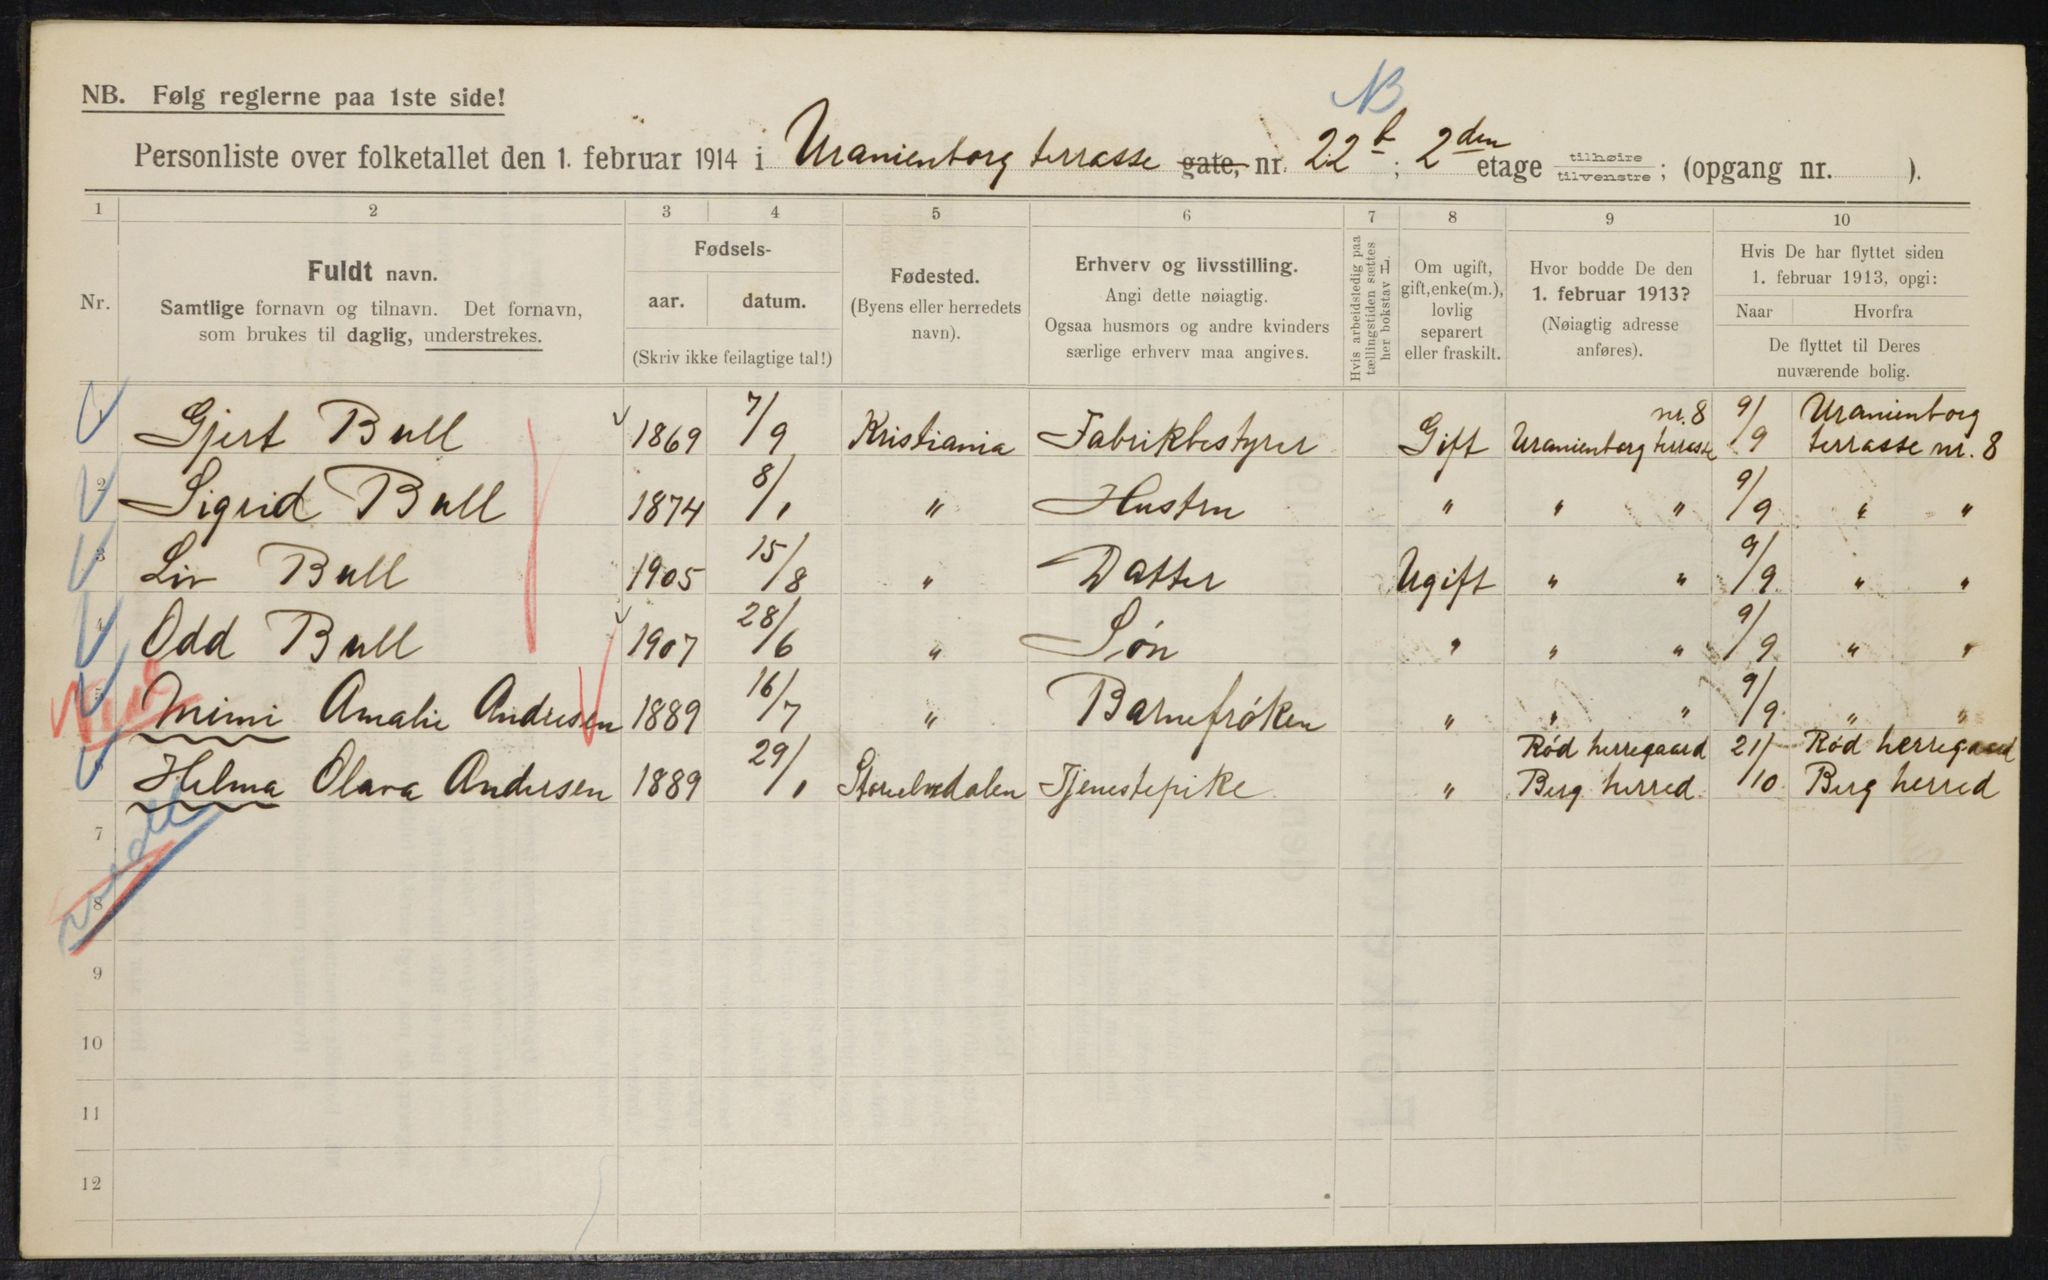 NB
NB. Følg reglerne paa 1ste side!
Personliste over folketallet den 1. februar 1914 i Uranienborg terrasse gate, nr. 22b; 2den etage tilhøire tilvenstre; (opgang nr. ).
1 2 3 4 5 6 7 8 9 10
Nr.
Fuldt navn.
Samtlige fornavn og tilnavn. Det fornavn,
som brukes til daglig, understrekes.
Fødsels-
aar. datum.
(Skriv ikke feilagtige tal!)
Fødested.
(Byens eller herredets
navn).
Erhverv og livsstilling.
Angi dette nøiagtig.
Ogsaa husmors og andre kvinders
særlige erhverv maa angives.
Hvis arbeidsledig paa
tællingstiden sættes
her bokstav L.
Om ugift,
gift, enke(m.),
lovlig
separert
eller fraskilt.
Hvor bodde De den
1. februar 1913?
(Nøiagtig adresse
anføres).
Hvis De har flyttet siden
1. februar 1913, opgi:
Naar Hvorfra
De flyttet til Deres
nuværende bolig.
1 Gjert Bull 1869 7/9 Kristiania Fabrikbestyrer Gift Uranienborg terrasse nr. 8 9/9 Uranienborg terrasse nr. 8
2 Sigrid Bull 1874 8/1 " Hustru " " " 9/9 " "
3 Liv Bull 1905 15/8 " Datter Ugift " " 9/9 " "
4 Odd Bull 1907 28/6 " Søn " " " 9/9 " "
5 Mimi Amalie Andresen 1889 16/7 " Barnefrøken " " " 9/9 " "
6 Helma Olava Andersen 1889 29/1 Storelvedalen Tjenestepike " Rød herregaard Berg herred. 21/10 Rød herregaard Berg herred
7
8
9
10
11
12